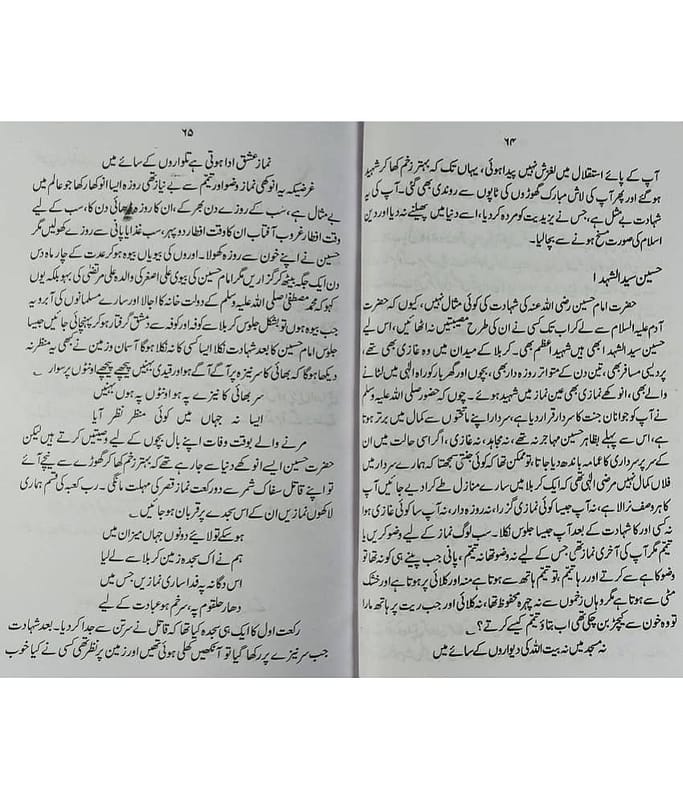 ۶۴
آپ کے پائے استقلال میں لغزش نہیں پیدا ہوئی، یہاں تک کہ بہتر زخم کھا کر شہید
ہو گئے اور پھر آپ کی لاش مبارک گھوڑوں کی ٹاپوں سے روندی بھی گئی۔ آپ کی یہ
شہادت بے مثل ہے، جس نے یزیدیت کو مردہ کر دیا، اسے دنیا میں پھیلنے نہ دیا اور دین
اسلام کی صورت مسخ ہونے سے بچا لیا۔
حسین سید الشہدا
حضرت امام حسین رضی اللہ عنہ کی شہادت کی کوئی مثال نہیں، کیوں کہ حضرت
آدم علیہ السلام سے لے کر اب تک کسی نے ان کی طرح مصیبتیں نہ اٹھائیں، اس لیے
حسین سید الشہدا بھی ہیں شہید اعظم بھی۔ کربلا کے میدان میں وہ غازی بھی تھے،
پردیسی مسافر بھی، تین دن کے متواتر روزہ دار بھی، بچوں اور گھر بار کو راہ الٰہی میں لٹانے
والے بھی، انوکھے نمازی بھی عین نماز میں شہید ہوئے۔ چوں کہ حضور صلی اللہ علیہ وسلم
نے آپ کو جوانان جنت کا سردار قرار دیا ہے، سردار اپنے ماتحتوں سے کمال میں برتر ہوتا
ہے، اس سے پہلے بظاہر حسین مہاجر نہ تھے، نہ مجاہد، نہ غازی، اگر اسی حالت میں ان
کے سر پر سرداری کا عمامہ باندھ دیا جاتا، تو ممکن تھا کہ کوئی جنتی سمجھتا کہ ہمارے سردار میں
فلاں کمال نہیں مرضی الٰہی تھی کہ ایک کربلا میں سارے منازل طے کرا دیے جائیں آپ
کا ہر وصف نرالا ہے، نہ آپ جیسا کوئی نمازی گزرا، نہ روزہ دار، نہ آپ سا کوئی غازی ہوا
نہ کسی اور کا شہادت کے بعد آپ جیسا جلوس نکلا۔ سب لوگ نماز کے لیے وضو کریں یا
تیمّم مگر آپ کی آخری نماز تھی جس کے لیے نہ وضو تھا نہ تیمّم، پانی جب پینے ہی کو نہ تھا تو
وضو کاہے سے کرتے اور رہا تیمّم، تو تیمّم ہاتھ سے ہوتا ہے منہ اور کلائی پر ہوتا ہے اور خشک
مٹی سے ہوتا ہے مگر وہاں زخموں سے نہ چہرہ محفوظ تھا، نہ کلائی اور جب ریت پر ہاتھ مارا
تو وہ خون سے کیچڑ بن چکی تھی اب بتاؤ تیمّم کیسے کرتے؟
نہ مسجد میں نہ بیت اللہ کی دیواروں کے سائے میں
۶۵
نماز عشق ادا ہوتی ہے تلواروں کے سائے میں
غرضیکہ یہ انوکھی نماز وضو اور تیمّم سے بے نیاز تھی روزہ ایسا انوکھا رکھا جو عالم میں
بے مثال ہے، سب کے روزے دن بھر کے، ان کا روزہ ڈھائی دن کا، سب کے لیے
وقت افطار غروب آفتاب ان کا وقت افطار دوپہر، سب غذا یا پانی سے روزے کھولیں مگر
حسین نے اپنے خون سے روزہ کھولا۔ اوروں کی بیویاں بیوہ ہو کر عدت کے چار ماہ دس
دن ایک جگہ بیٹھ کر گزاریں مگر امام حسین کی بیوی علی اصغر کی والدہ علی مرتضی کی بہو بلکہ یوں
کہو کہ محمد مصطفی صلی اللہ علیہ وسلم کے دولت خانہ کا اجالا اور سارے مسلمانوں کی آبرو یہ
جب بیوہ ہوں تو بشکل جلوس کربلا سے کوفہ اور کوفہ سے دمشق گرفتار ہو کر پہنچائی جائیں جیسا
جلوس امام حسین کا بعد شہادت نکلا ایسا کسی کا نہ نکلا ہوگا آسمان و زمین نے بھی یہ منظر نہ
دیکھا ہوگا کہ بھائی کا سر نیزہ پر آگے آگے ہو اور قیدی بہنیں پیچھے پیچھے اونٹوں پر سوار۔
سر بھائی کا نیزے پہ ہو اونٹوں پہ ہوں بہنیں
ایسا نہ جہاں میں کوئی منظر نظر آیا
مرنے والے بوقت وفات اپنے بال بچوں کے لیے وصیتیں کرتے ہیں لیکن
حضرت حسین ایسے انوکھے دنیا سے جا رہے تھے کہ بہتر زخم کھا کر گھوڑے سے نیچے آئے
تو اپنے قاتل سفاک شمر سے دو رکعت نماز قصر کی مہلت مانگی۔ رب کعبہ کی قسم ہماری
لاکھوں نمازیں ان کے اس سجدے پر قربان ہو جائیں۔
ہو سکے تو لائے دونوں جہاں میزان میں
ہم نے اک سجدہ زمین کربلا سے لے لیا
اس دوگانہ پہ فدا ساری نمازیں جس میں
دھار حلقوم پہ، سر خم ہو عبادت کے لیے
رکعت اول کا ایک ہی سجدہ کیا تھا کہ قاتل نے سر تن سے جدا کر دیا۔ بعد شہادت
جب سر نیزے پر رکھا گیا تو آنکھیں کھلی ہوئی تھیں اور زمین پر نظر تھی کسی نے کیا خوب